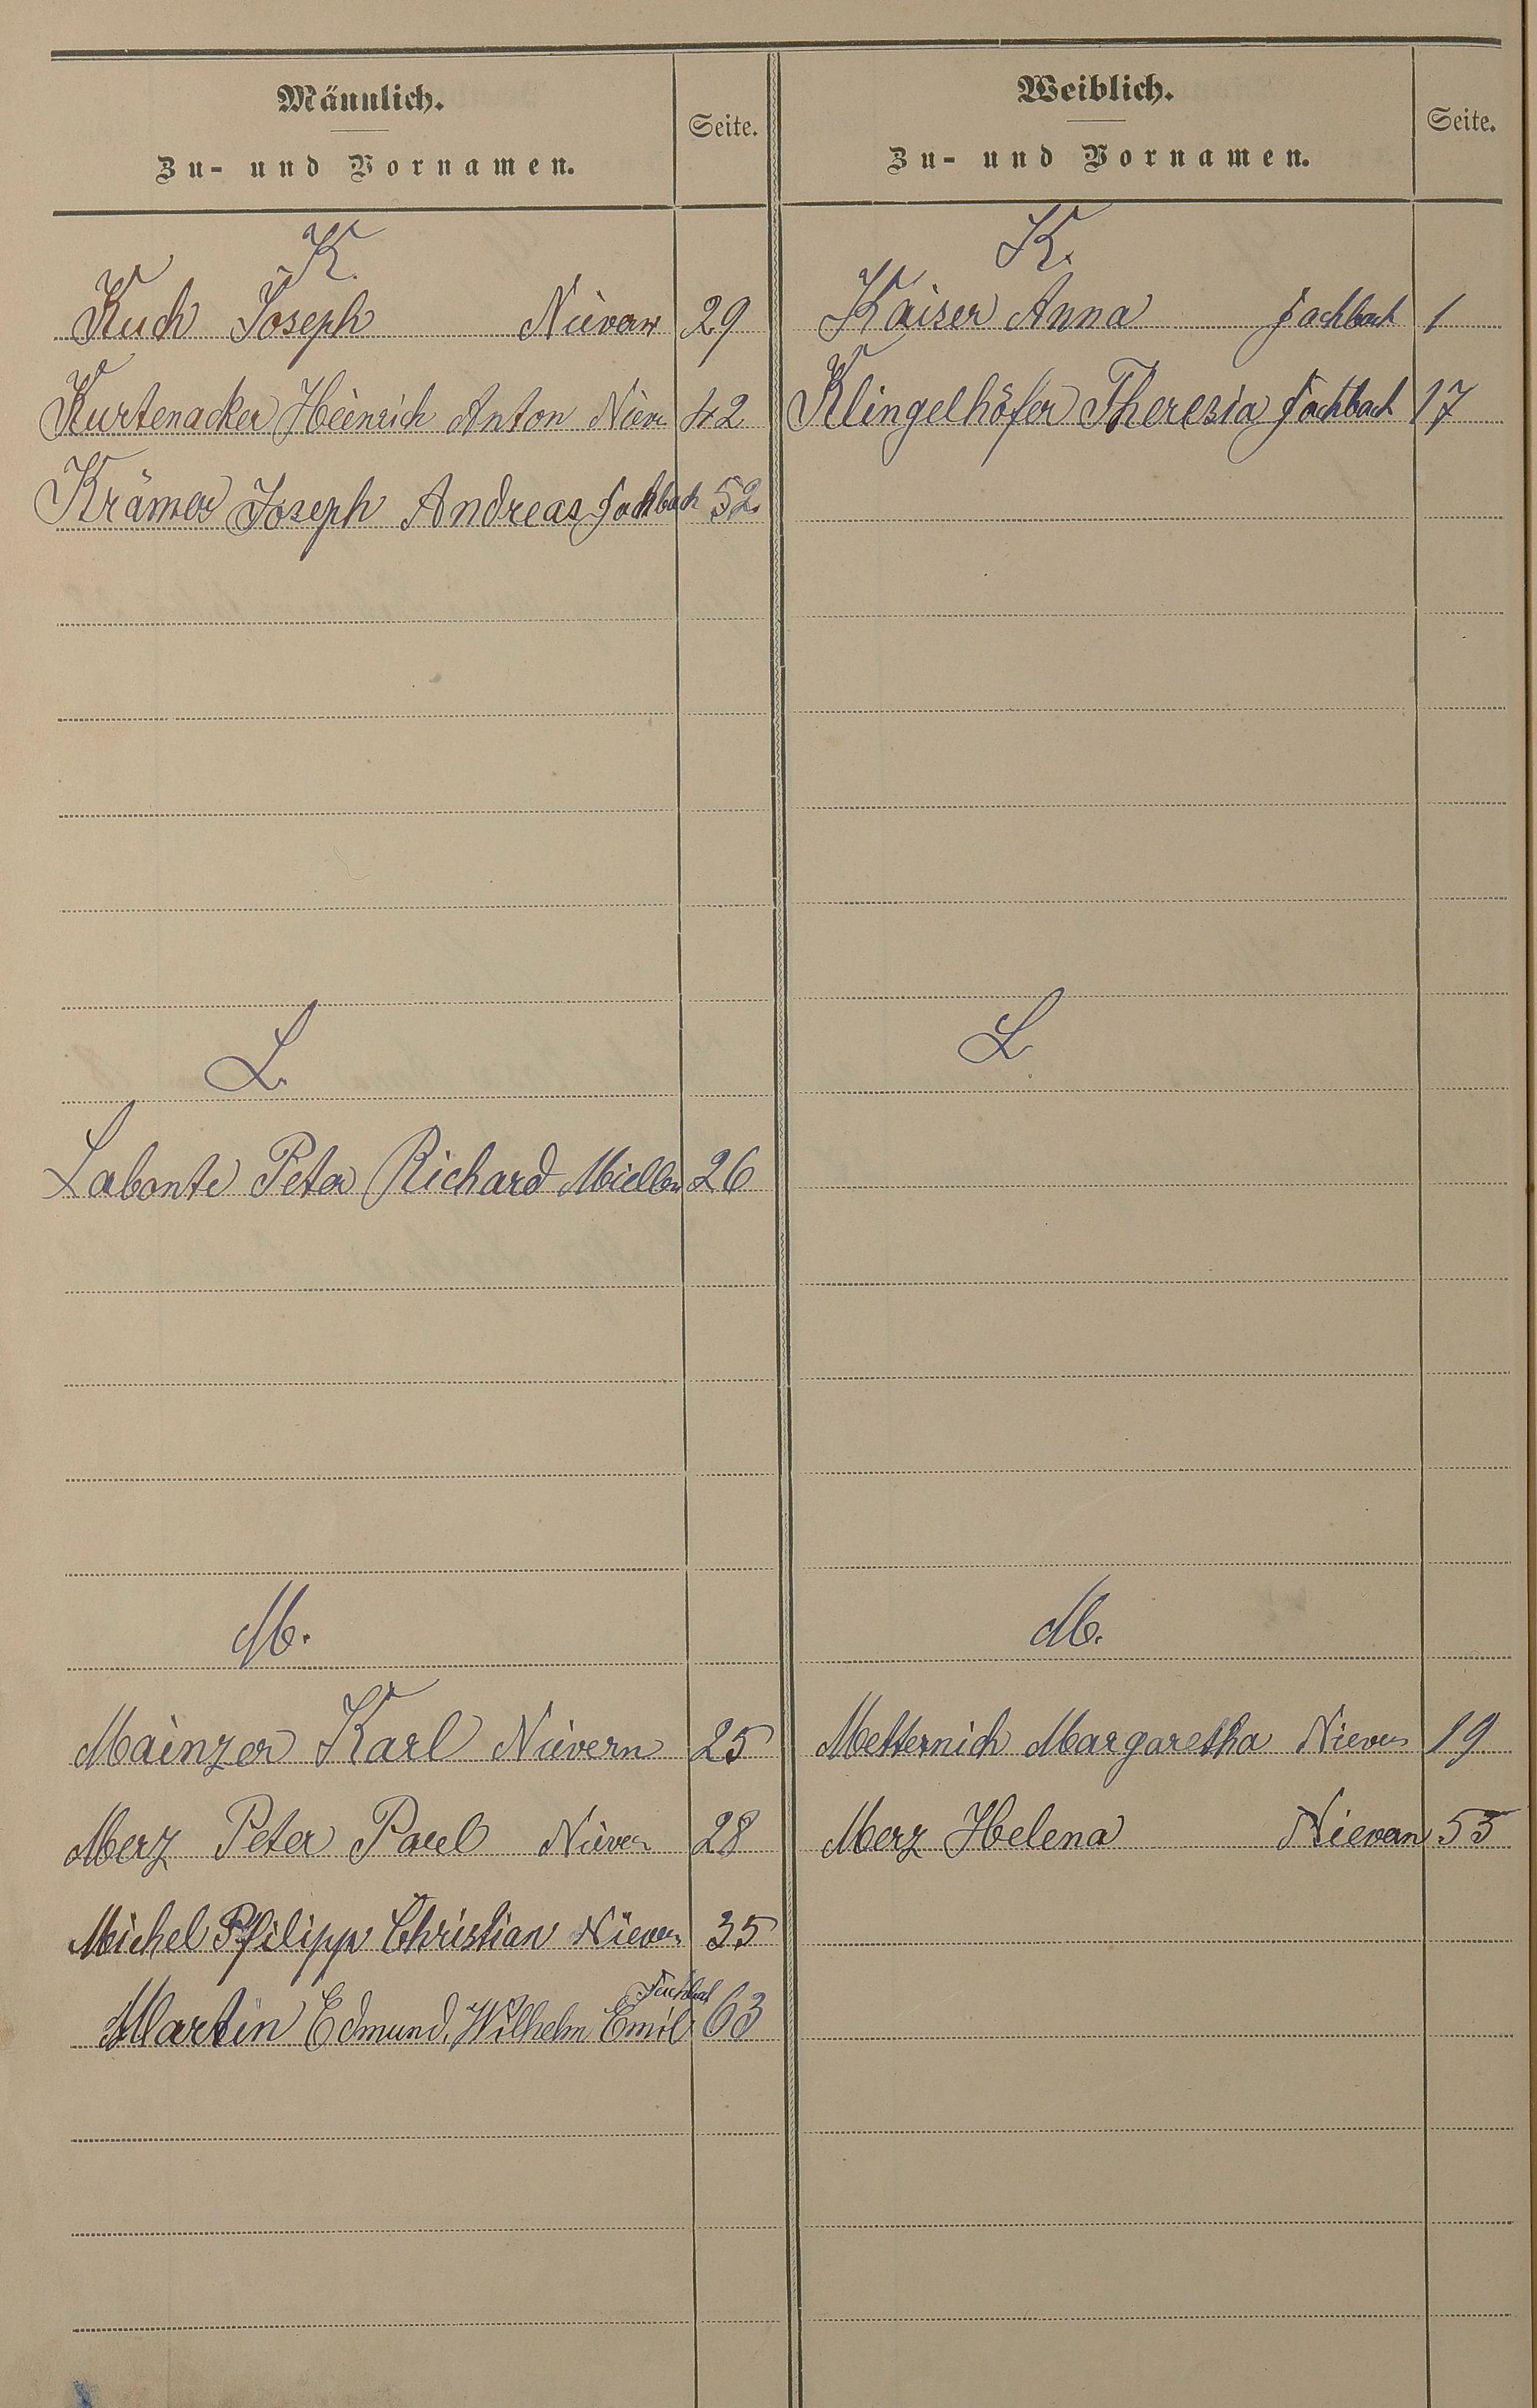 Männlich.
Zu- und Vornamen.
Seite.
K.
Kuch Joseph Nievern 29
Kurtenacker Heinrich Anton Niev. 42
Krämer Joseph Andreas Fachbach 52.
L.
Labonte Peter Richard Miellen 26
M.
Mainzer Karl Nievern 25
Merz Peter Paul Nievern 28
Michel Philipp Christian Nievern 35
Fachbach
Martin Edmund, Wilhelm Emil 63
Weiblich.
Zu- und Vornamen.
Seite.
K.
Kaiser Anna Fachbach 1
Klingelhöfer Theresia Fachbach 17
L
M.
Metternich Margaretha Nievern 19
Merz Helena Nievern 55